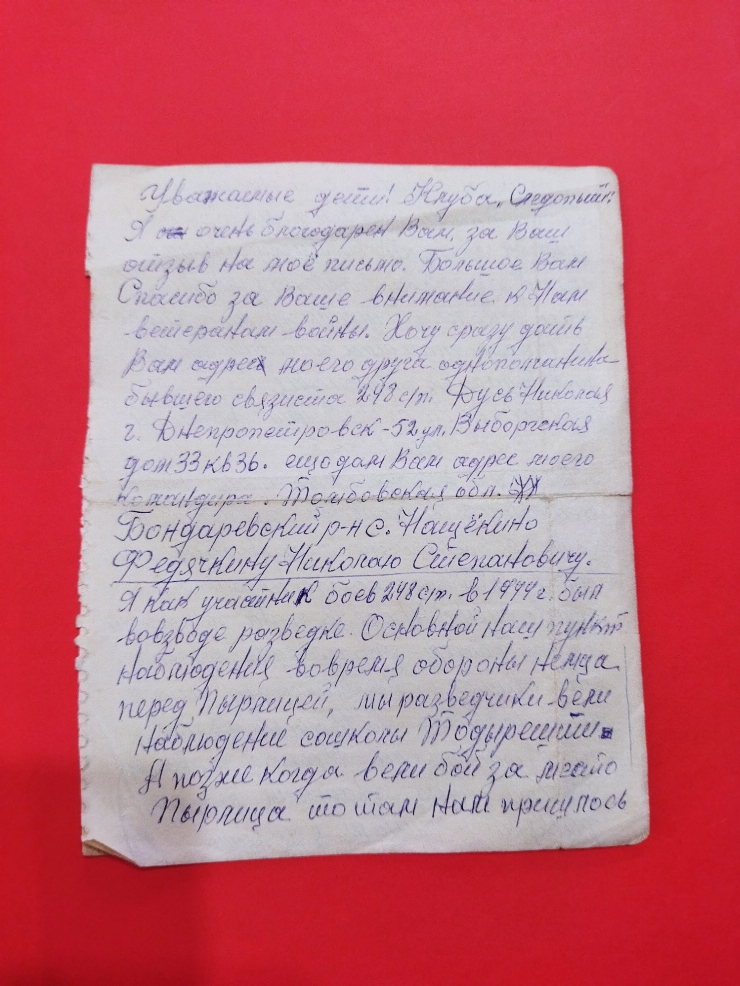 Уважаемые дети! Клуба, Следопыт:
Я очень благодарен Вам, за Ваш
отзыв на моё письмо. Большое Вам
Спасибо за Ваше внимание к Нам
ветеранам войны. Хочу сразу дать
Вам адрес моего друга однополчанина
бывшего связиста 248 сп. Фусь Николая
г. Днепропетровск-52 ул. Выборгская
дом 33 кв 36. ещо дам Вам адрес моего
командира. Томбовская обл.
Бондаревский р-н с. Нащёкино
Федячкину Николаю Степановичу.
Я как участник боев 248 сп. в 1944 г. был
вовзводе разведке. Основной наш пункт
наблюдения вовремя обороны немца
перед Пырлицей, мы разведчики вели
наблюдение сошколы Тодырешты.
А позже когда вели бой за
Пырлица то там нам пришлось